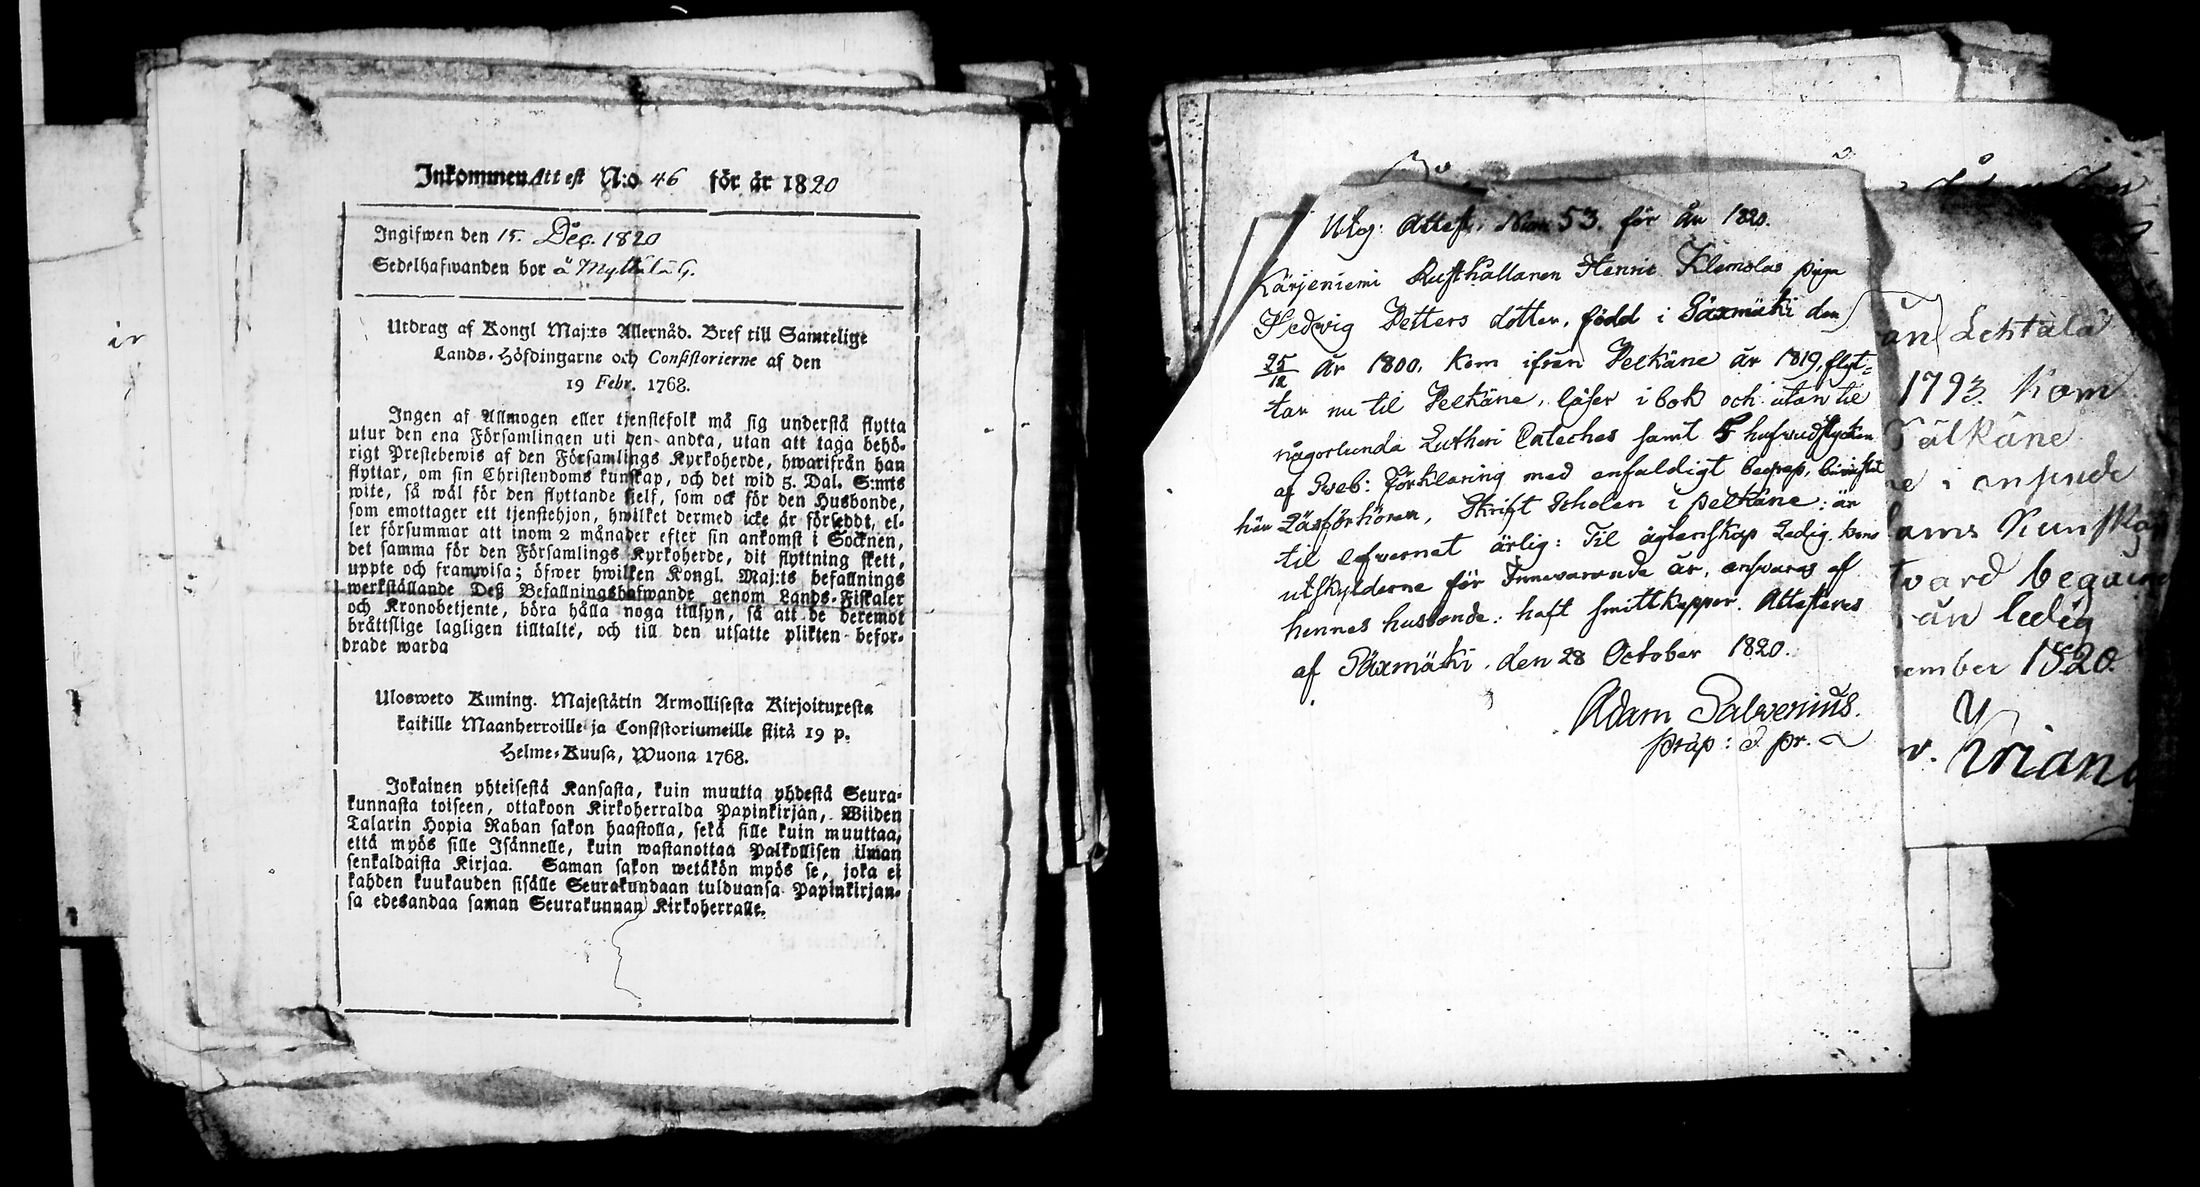 Inkommen Attest N:o 46 för år 1820
Ingifwen den 15. Dec. 1820
Sedelhafwanden bor å Myttälä G.
Utdrag af Kongl Maj:ts Allernåd. Bref till Samtelige
Lands-Höfdingarne och Consistorierne af den
19 Febr. 1768.
Ingen af Allmogen eller tjenstefolk må sig understå flytta
utur den ena Församlingen uti den andra, utan att taga behö-
rigt Prestebewis af den Församlings Kyrkoherde, hwarifrån han
flyttar, om sin Christendoms kunskap, och det wid 5. Dal. S:mts
wite, så wäl för den flyttande sielf, som ock för den Husbonde,
som emottager ett tjenstehjon, hwilket dermed icke är försedt, el-
ler försummar att inom 2 månader efter sin ankomst i Socknen,
det samma för den Församlings Kyrkoherde, dit flyttning skett,
uppte och framwisa; öfwer hwilken Kongl. Maj:ts befallnings
werkställande Deß Befallningshafwande genom Lands-Fiskaler
och Kronobetjente, böra hålla noga tillsyn, så att de deremot
bråttslige lagligen tilltalte, och till den utsatte plikten befor-
drade warda
Ulosweto Kuning. Majestätin Armollisesta Kirjoituxesta
kaikille Maanherroille ja Consistoriumeille siitä 19 p.
Helme-Kuusa, Wuona 1768.
Jokainen yhteisestä Kansasta, kuin muutta yhdestä Seura-
kunnasta toiseen, ottakoon Kirkoherralda Papinkirjan, Wiiden
Talarin Hopia Rahan sakon haastolla, sekä sille kuin muuttaa,
että myös sille Isännelle, kuin wastanottaa Palkollisen ilman
senkaldaista Kirjaa. Saman sakon wetäkön myös se, joka ei
kahden kuukauden sisälle Seurakundaan tulduansa Papinkirjan-
sa edesandaa saman Seurakunnan Kirkoherralle.
Utog: Attest. Num 53. för År 1820.
Kärjeniemi Rusthållaren Henric Klemolas piga
Hedvig Petters dotter, född i Säxmäki den
25/12 År 1800. Kom ifrån Pelkäne år 1819, flyt=
tar nu til Pelkäne, läser i bok och utan til
någorlunda Lutheri Cateches samt 5 hufwudstycken
af Sveb: Förklaring med enfaldigt begrep, biwistat
här Läsförhören, Skrift Scholen i Pelkäne: är
til lefvernet ärlig: Til äktenskap Ledig. krono
utskylderne för Innevarande år, ansvaras af
hennes husbonde: haft smittkoppor. Attesteras
af Säxmäki, den 28 October 1820.
Adam Salvenius.
præp: & pr.
än Lehtala
1793. Kom
Pälkäne
e i anseende
doms Kunskap
tvard beguine
än ledig
ember 1820.